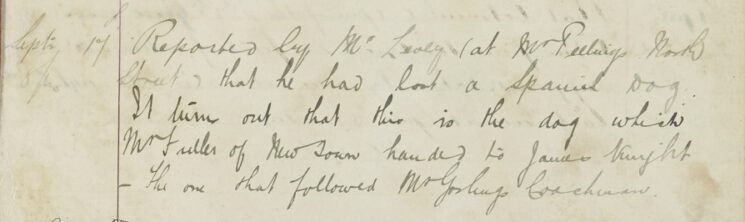 Septr 17 Reported by Mr Levey (at Mr Feelings North
Street) that he had lost a Spaniel Dog.
It turns out that this is the dog which
Mr Fuller of New Town handed to James Knight
- the one that followed Mr Goslings Coachman.